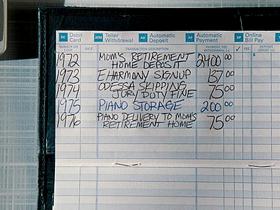 Debit Card
Teller Withdrawal
Automatic Deposit
Automatic Payment
Online Bill Pay
DATE
TRANSACTION DESCRIPTION
1972 MOM'S RETIREMENT HOME DEPOSIT 2400 00
1973 EHARMONY SIGNUP 137 00
1974 ODESSA SKIPPING JURY DUTY FINE 75 00
1975 PIANO STORAGE 200 00
1976 PIANO DELIVERY TO MOM'S RETIREMENT HOME 75 00